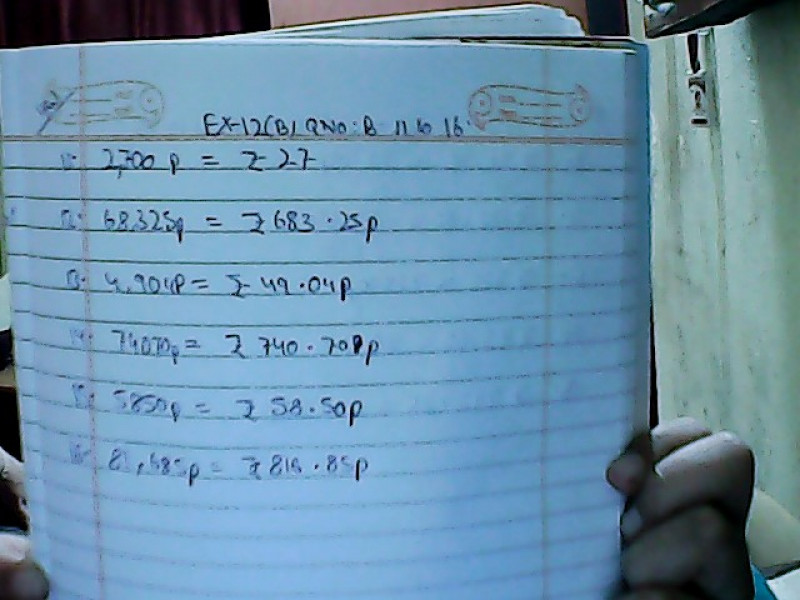 EX-12(B) Q NO: B 11 to 16.
11. 2,700 p = ₹ 27
12. 68325p = ₹ 683.25p
13. 4,904P = ₹ 49.04p
14. 74070p = ₹ 740.70p
15. 5850p = ₹ 58.50p
16. 81,685p = ₹ 816.85p